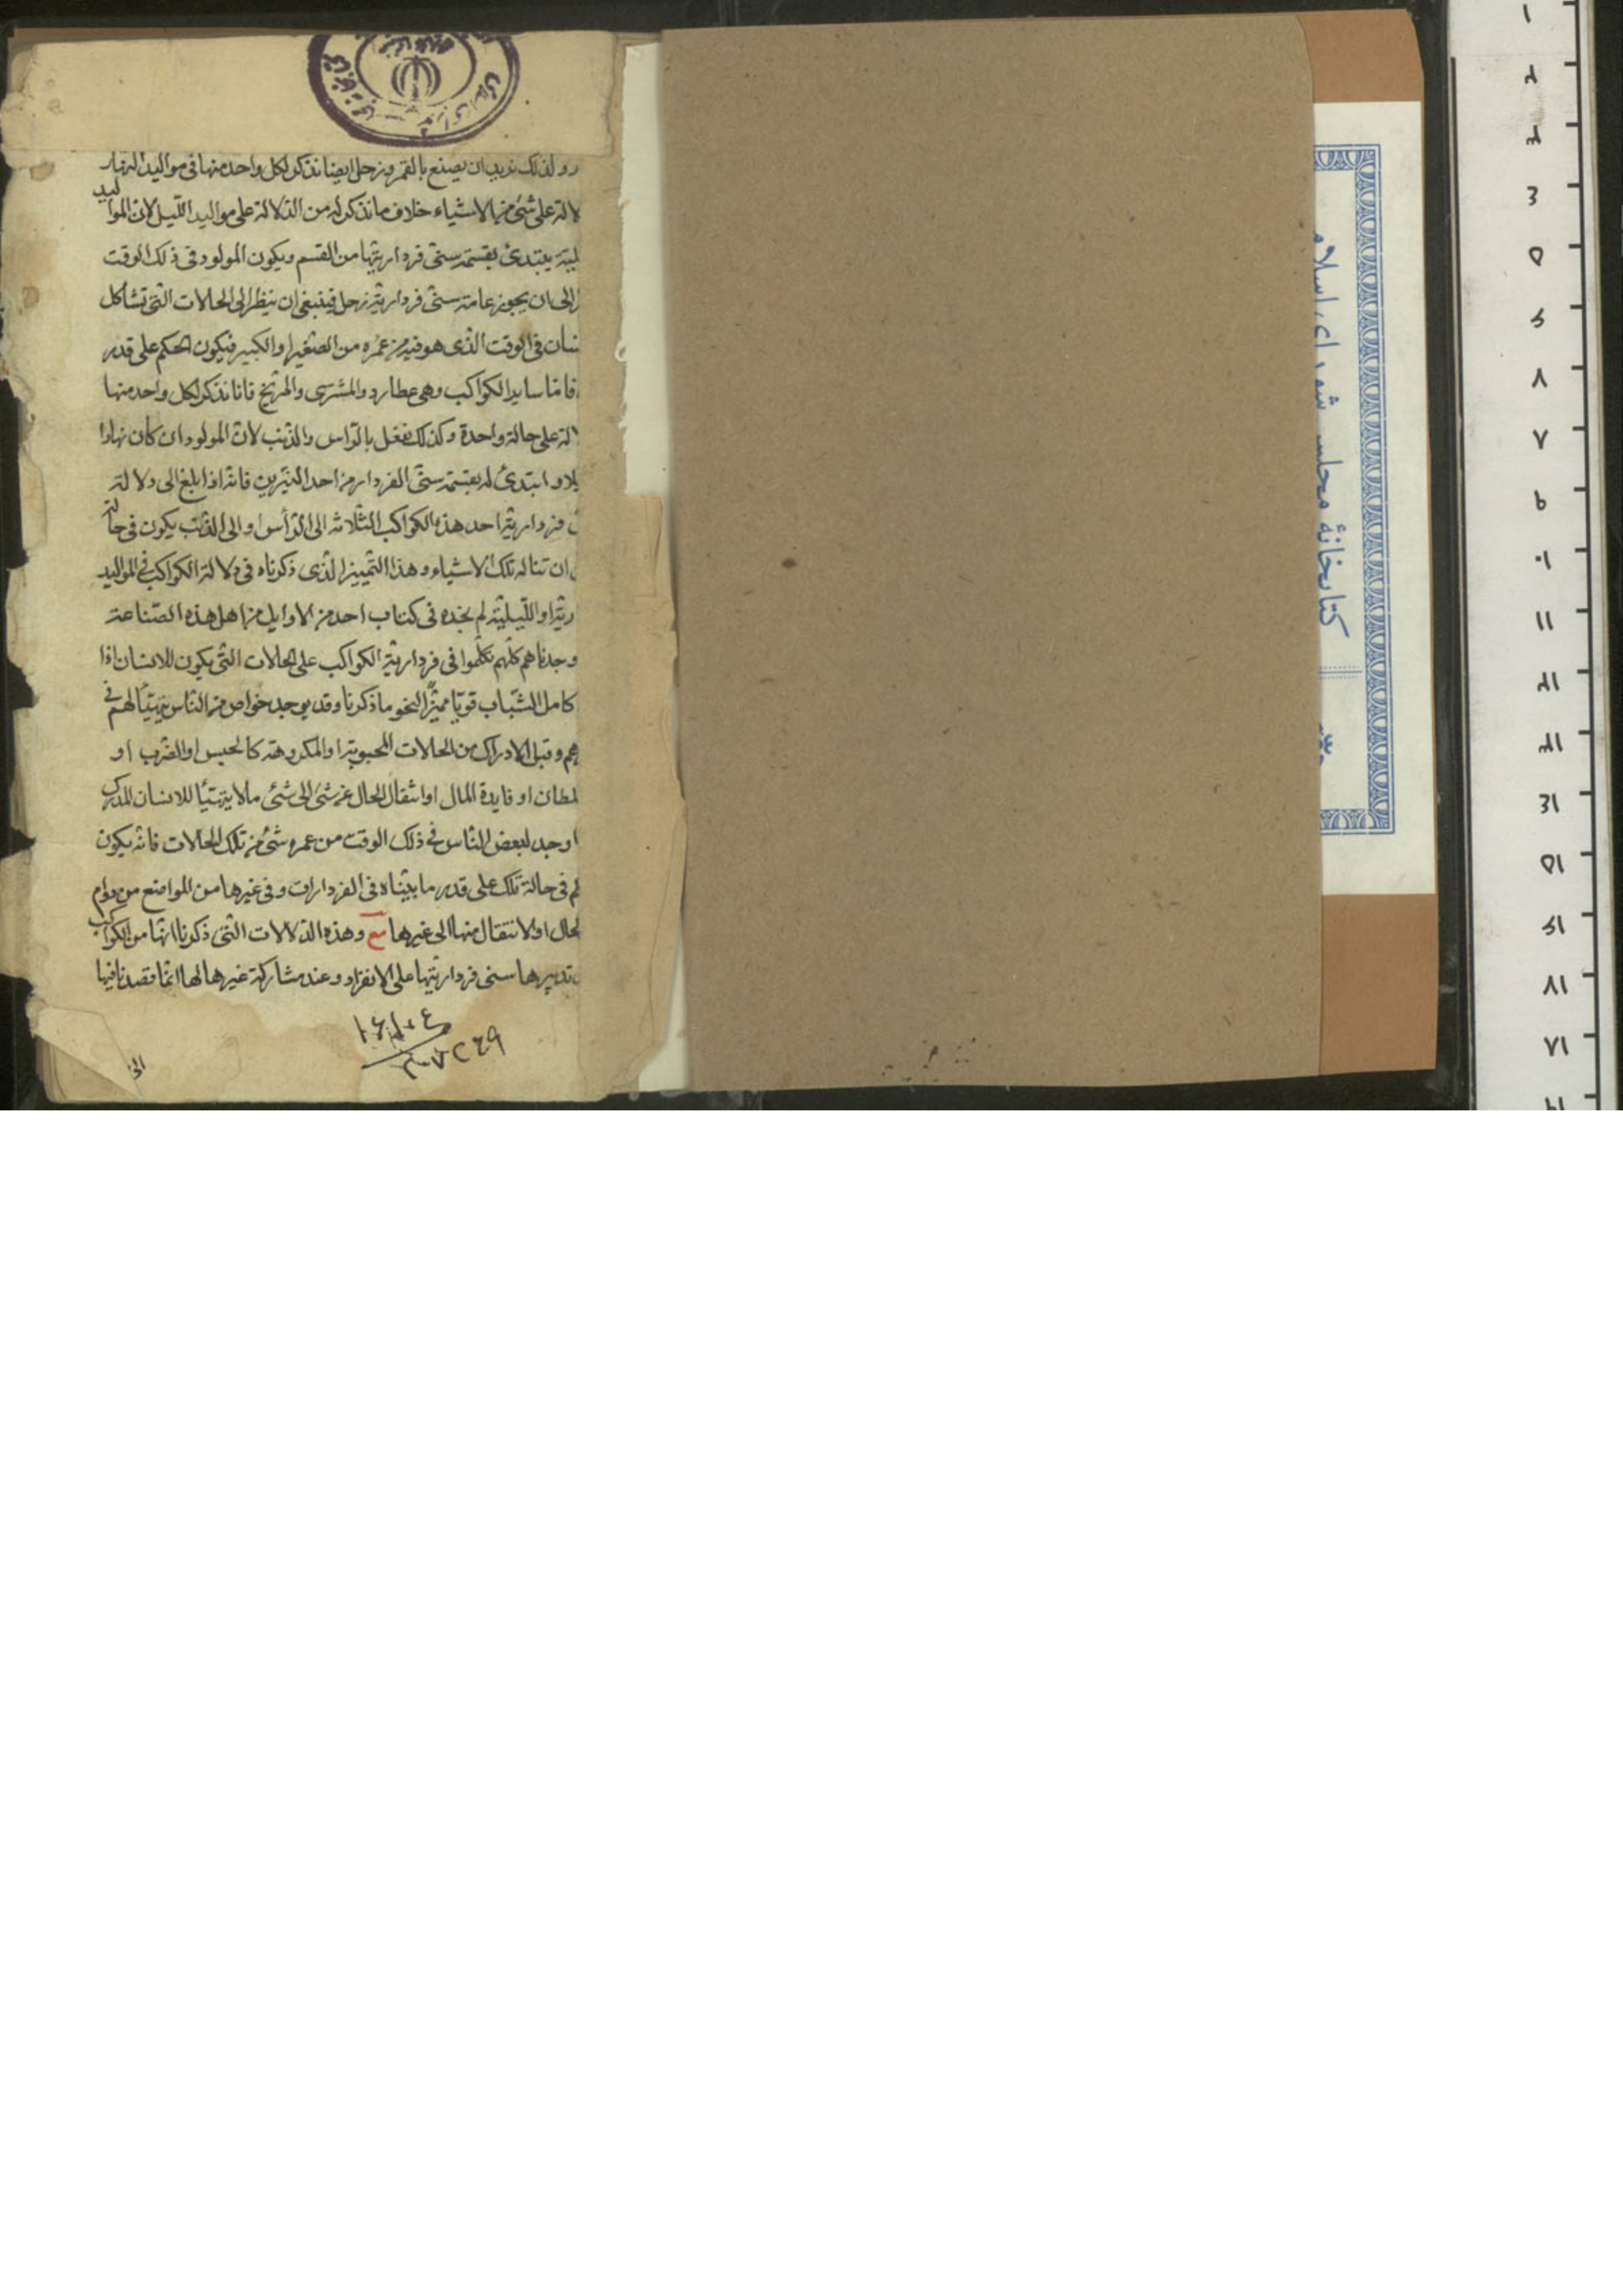 ولذلك نريد ان يصنع بالقمر وزحل ايضا نذكر لكل واحد منها فى مواليد النهار
لالة على شئ من الاشياء خلاف ما نذكر له من الدلالة على مواليد الليل لان المواليد
يبتدئ بقسمة سنى فرداريتها من القسم ويكون المولود فى ذلك الوقت
الى ان يجوز عامة سنى فردارية زحل فينبغى ان ينظر الى الحالات التى تشاكل
نسان فى الوقت الذى هو فيه من عمره من الصغير او الكبير فيكون الحكم على قدر
فاما ساير الكواكب وهى عطارد والمشترى والمريخ فانا نذكر لكل واحد منها
لة على حالة واحدة وكذلك نفعل بالراس والذنب لان المولود ان كان نهارا
يلا و ابتدئ له بقسمة سنى الفردار من احد النيرين فانه اذا بلغ الى دلالة
فردارية احد هذه الكواكب الثلاثة الى الرأس او الى الذنب يكون فى حالة
ان تناله تلك الاشياء وهذا التمييز الذى ذكرناه فى دلالة الكواكب فى المواليد
رية او الليلية لم نجده فى كتاب احد من الاوايل من اهل هذه الصناعة
وجدناهم كلهم تكلموا فى فردارية الكواكب على الحالات التى يكون للانسان اذا
كامل الشباب قويا مميزا لنحو ما ذكرنا وقد يوجد خواص من الناس يتهيّأ لهم فى
هم وقبل الادراك من الحالات المحبوبة او المكروهة كالحبس او الضرب او
لطان او فايدة المال او انتقال الحال عن شئ الى شئ ما لا يتهيّأ للانسان المدرك
وجد لبعض الناس فى ذلك الوقت من عمره شئ من تلك الحالات فانه يكون
فى حالة تلك على قدر ما بيّناه فى الفردارات وفى غيرها من المواضع من دوام
لحال او الانتقال منها الى غيرها مع وهذه الدلالات التى ذكرنا انها من الكواكب
تدبيرها سنى فرداريتها على الانفراد وعند مشاركة غيرها لها انما قصدنا فيها
كتابخانهٔ مجلس شورای اسلامی
۱
۲
۳
۴
۵
۶
۷
۸
۹
۱۰
۱۱
۱۲
۱۳
۱۴
۱۵
۱۶
۱۷
۱۸